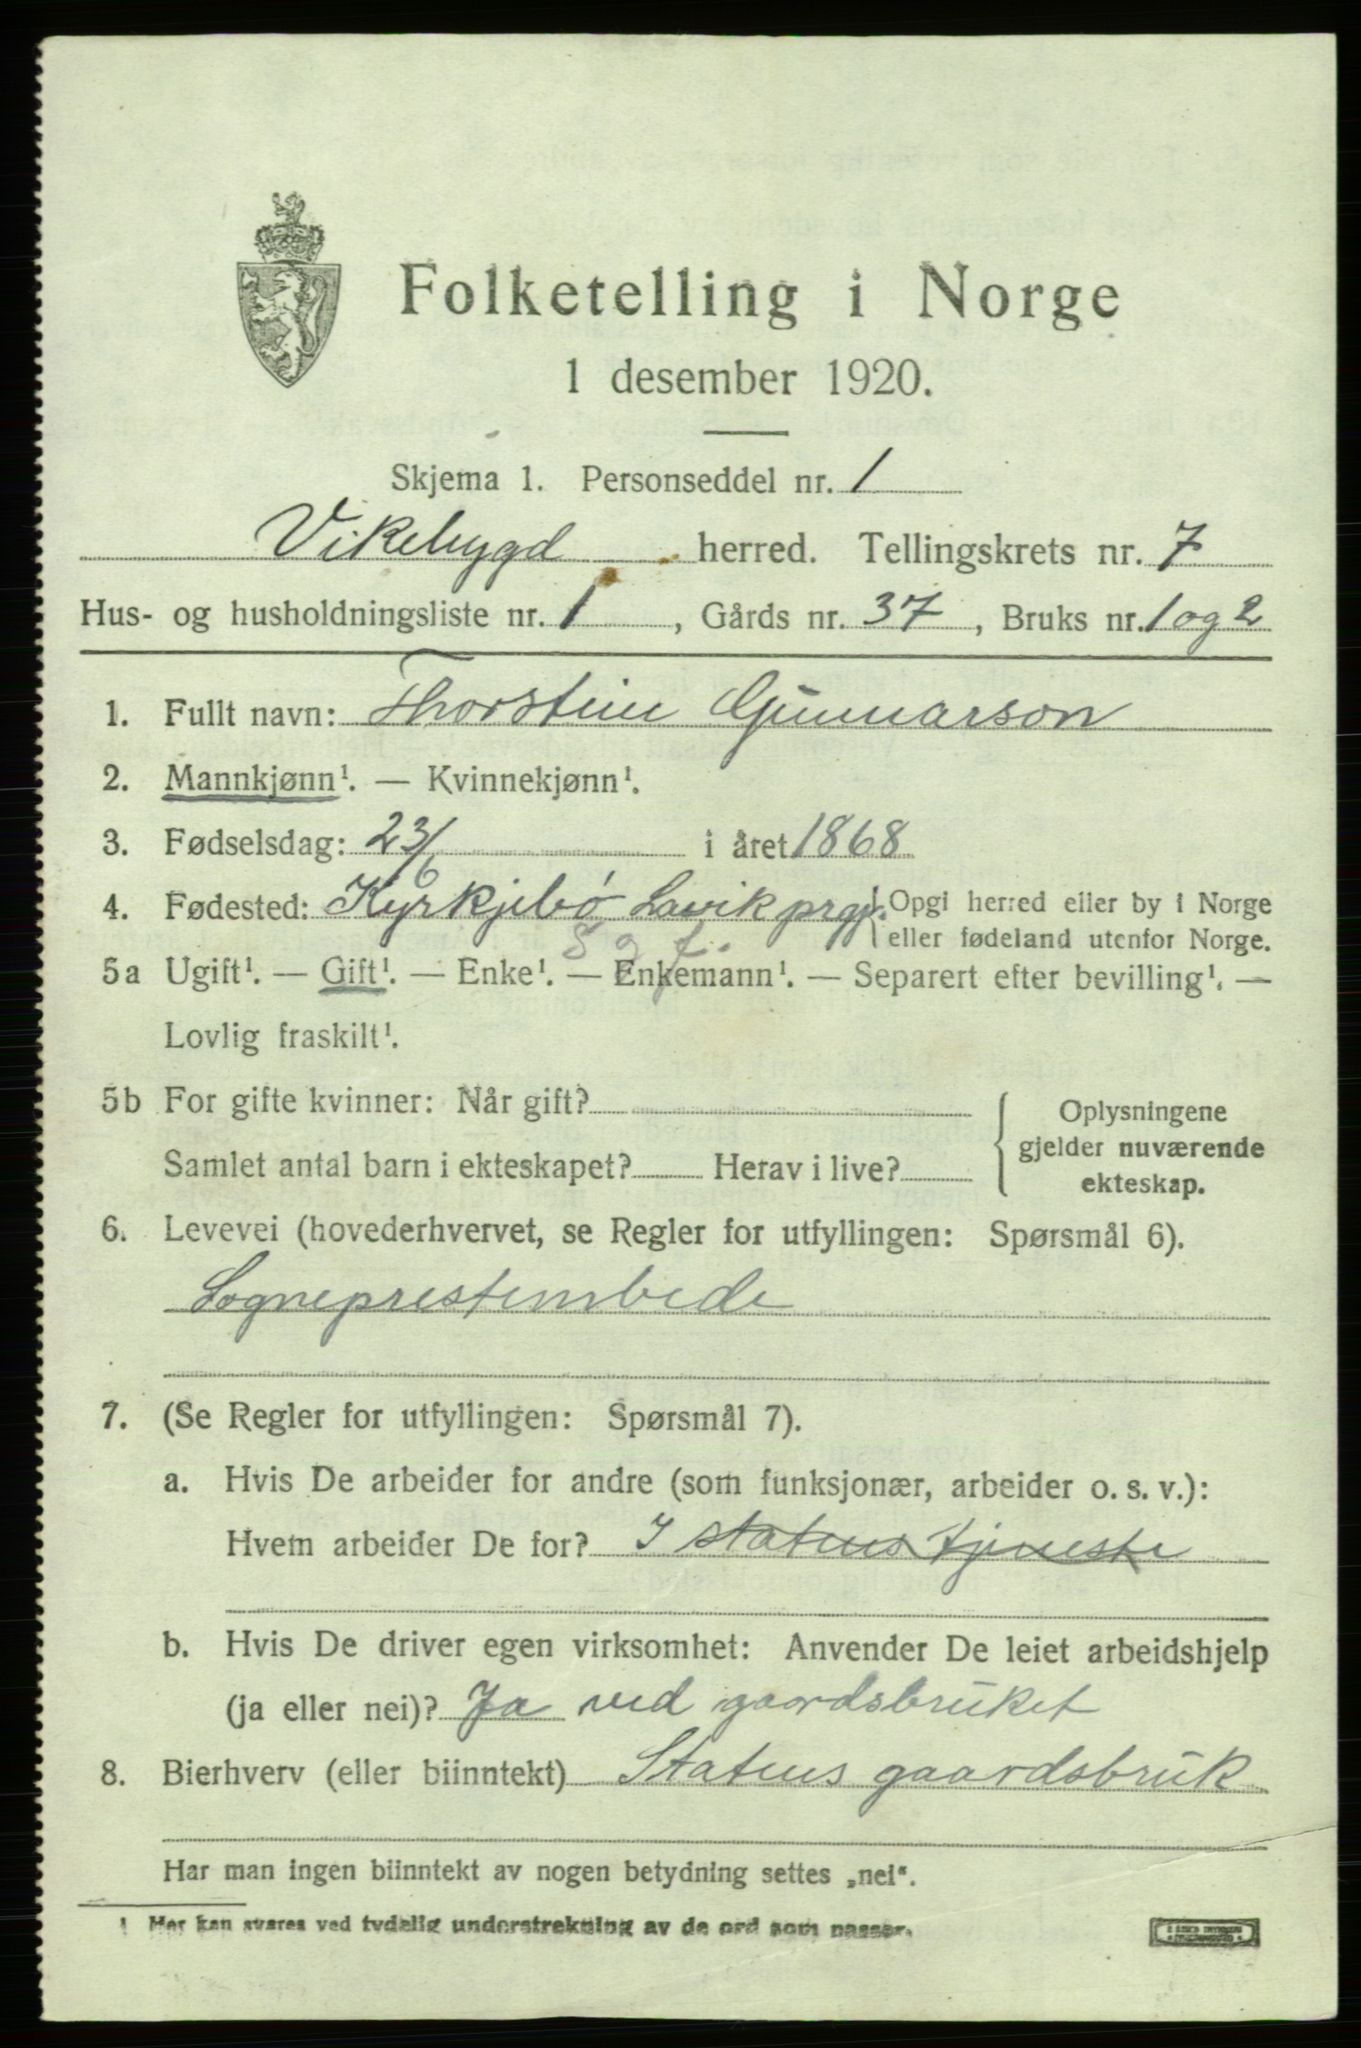 Folketelling i Norge
1 desember 1920.
Skjema 1. Personseddel nr. 1
Vikebygd herred. Tellingskrets nr. 7
Hus- og husholdningsliste nr. 1, Gårds nr. 37, Bruks nr. 1 og 2
1. Fullt navn: Thorstein Gunnarson
2. Mannkjønn¹. — Kvinnekjønn¹.
3. Fødselsdag: 23/6 i året 1868
4. Fødested: Kyrkjebø Lavik prgj. Opgi herred eller by i Norge
eller fødeland utenfor Norge.
S. o. f.
5a Ugift¹. — Gift¹. — Enke¹. — Enkemann¹. — Separert efter bevilling¹. —
Lovlig fraskilt¹.
5b For gifte kvinner: Når gift?
Samlet antal barn i ekteskapet? Herav i live?
Oplysningene
gjelder nuværende
ekteskap.
6. Levevei (hovederhvervet, se Regler for utfyllingen: Spørsmål 6).
Sogneprestembede
7. (Se Regler for utfyllingen: Spørsmål 7).
a. Hvis De arbeider for andre (som funksjonær, arbeider o. s. v.):
Hvem arbeider De for? I statens tjeneste
b. Hvis De driver egen virksomhet: Anvender De leiet arbeidshjelp
(ja eller nei)? Ja ved gaardsbruket
8. Bierhverv (eller biinntekt) Statens gaardsbruk
Har man ingen biinntekt av nogen betydning settes „nei“.
1 Her kan svares ved tydelig understrekning av de ord som passer.